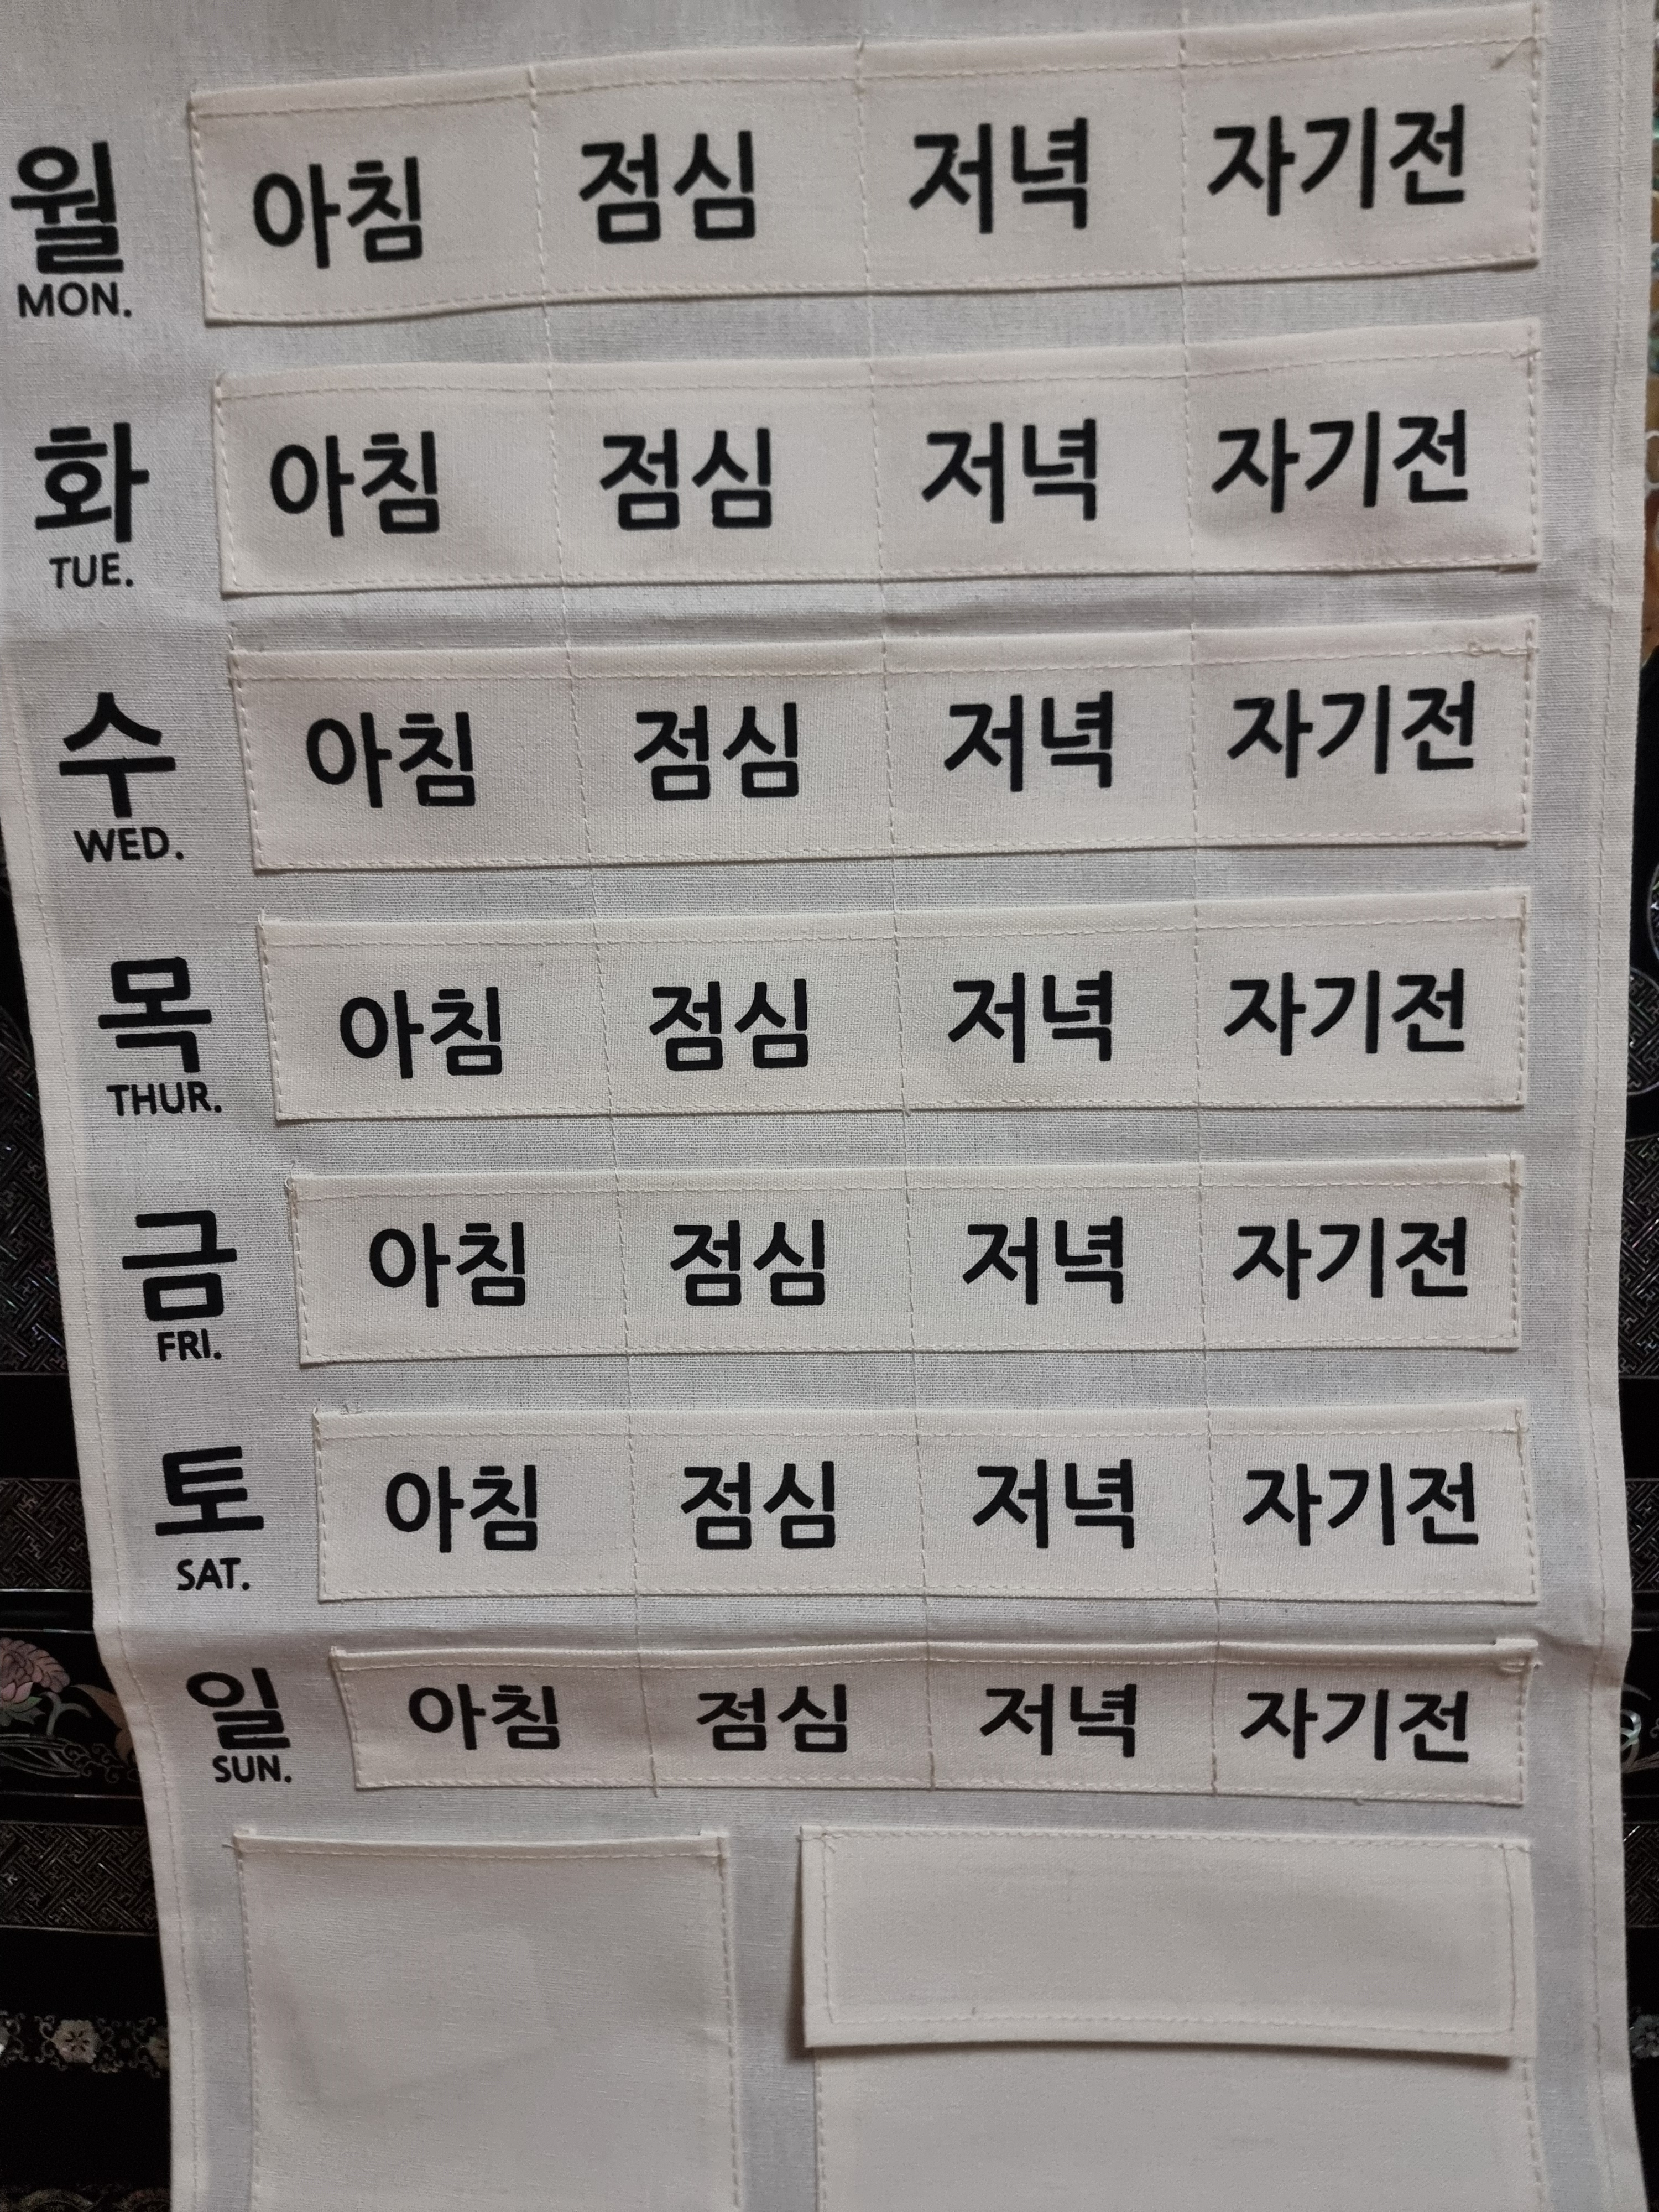 월 아침 점심 저녁 자기전
MON.
화 아침 점심 저녁 자기전
TUE.
수 아침 점심 저녁 자기전
WED.
목 아침 점심 저녁 자기전
THUR.
금 아침 점심 저녁 자기전
FRI.
토 아침 점심 저녁 자기전
SAT.
일 아침 점심 저녁 자기전
SUN.